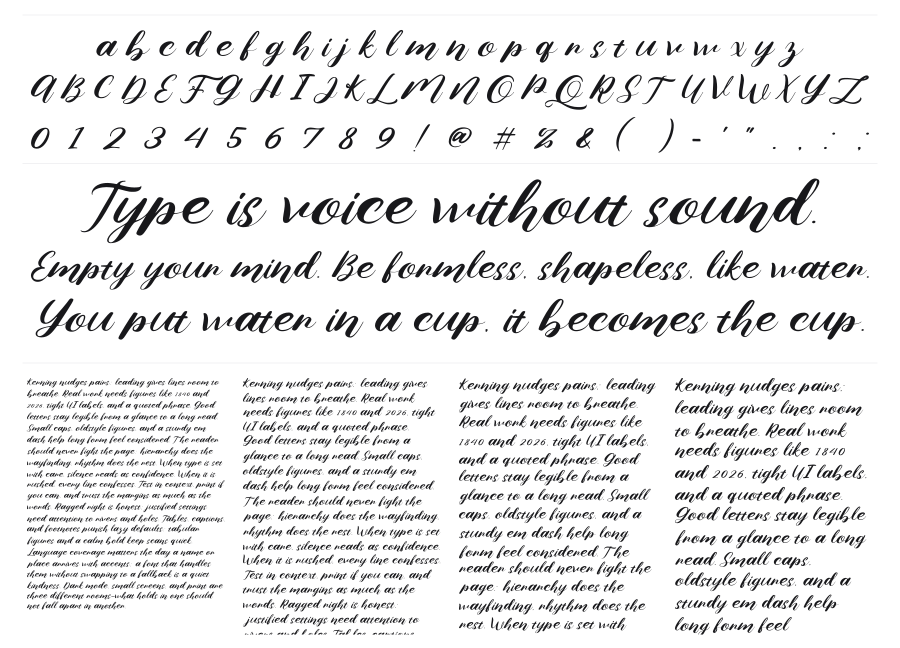 a b c d e f g h i j k l m n o p q r s t u v w x y z
A B C D E F G H I J K L M N O P Q R S T U V W X Y Z
0 1 2 3 4 5 6 7 8 9 ! @ # % & ( ) - ' " . , : ;
Type is voice without sound.
Empty your mind. Be formless, shapeless, like water.
You put water in a cup, it becomes the cup.
Kerning nudges pairs; leading gives lines room to
breathe. Real work needs figures like 1840 and
2026, tight UI labels, and a quoted phrase. Good
letters stay legible from a glance to a long read.
Small caps, oldstyle figures, and a sturdy em
dash help long form feel considered. The reader
should never fight the page; hierarchy does the
wayfinding, rhythm does the rest. When type is set
with care, silence reads as confidence. When it is
rushed, every line confesses. Test in context, print if
you can, and trust the margins as much as the
words. Ragged right is honest; justified settings
need attention to rivers and holes. Tables, captions,
and footnotes punish lazy defaults; tabular
figures and a calm bold keep scans quick.
Language coverage matters the day a name or
place arrives with accents; a font that handles
them without swapping to a fallback is a quiet
kindness. Dark mode, small sizes, and print are
three different rooms—what holds in one should
not fall apart in another.
Kerning nudges pairs; leading gives
lines room to breathe. Real work
needs figures like 1840 and 2026, tight
UI labels, and a quoted phrase.
Good letters stay legible from a
glance to a long read. Small caps,
oldstyle figures, and a sturdy em
dash help long form feel considered.
The reader should never fight the
page; hierarchy does the wayfinding,
rhythm does the rest. When type is set
with care, silence reads as confidence.
When it is rushed, every line confesses.
Test in context, print if you can, and
trust the margins as much as the
words. Ragged right is honest;
justified settings need attention to
rivers and holes. Tables, captions,
Kerning nudges pairs; leading
gives lines room to breathe.
Real work needs figures like
1840 and 2026, tight UI labels,
and a quoted phrase. Good
letters stay legible from a
glance to a long read. Small
caps, oldstyle figures, and a
sturdy em dash help long
form feel considered. The
reader should never fight the
page; hierarchy does the
wayfinding, rhythm does the
rest. When type is set with
Kerning nudges pairs;
leading gives lines room
to breathe. Real work
needs figures like 1840
and 2026, tight UI labels,
and a quoted phrase.
Good letters stay legible
from a glance to a long
read. Small caps,
oldstyle figures, and a
sturdy em dash help
long form feel